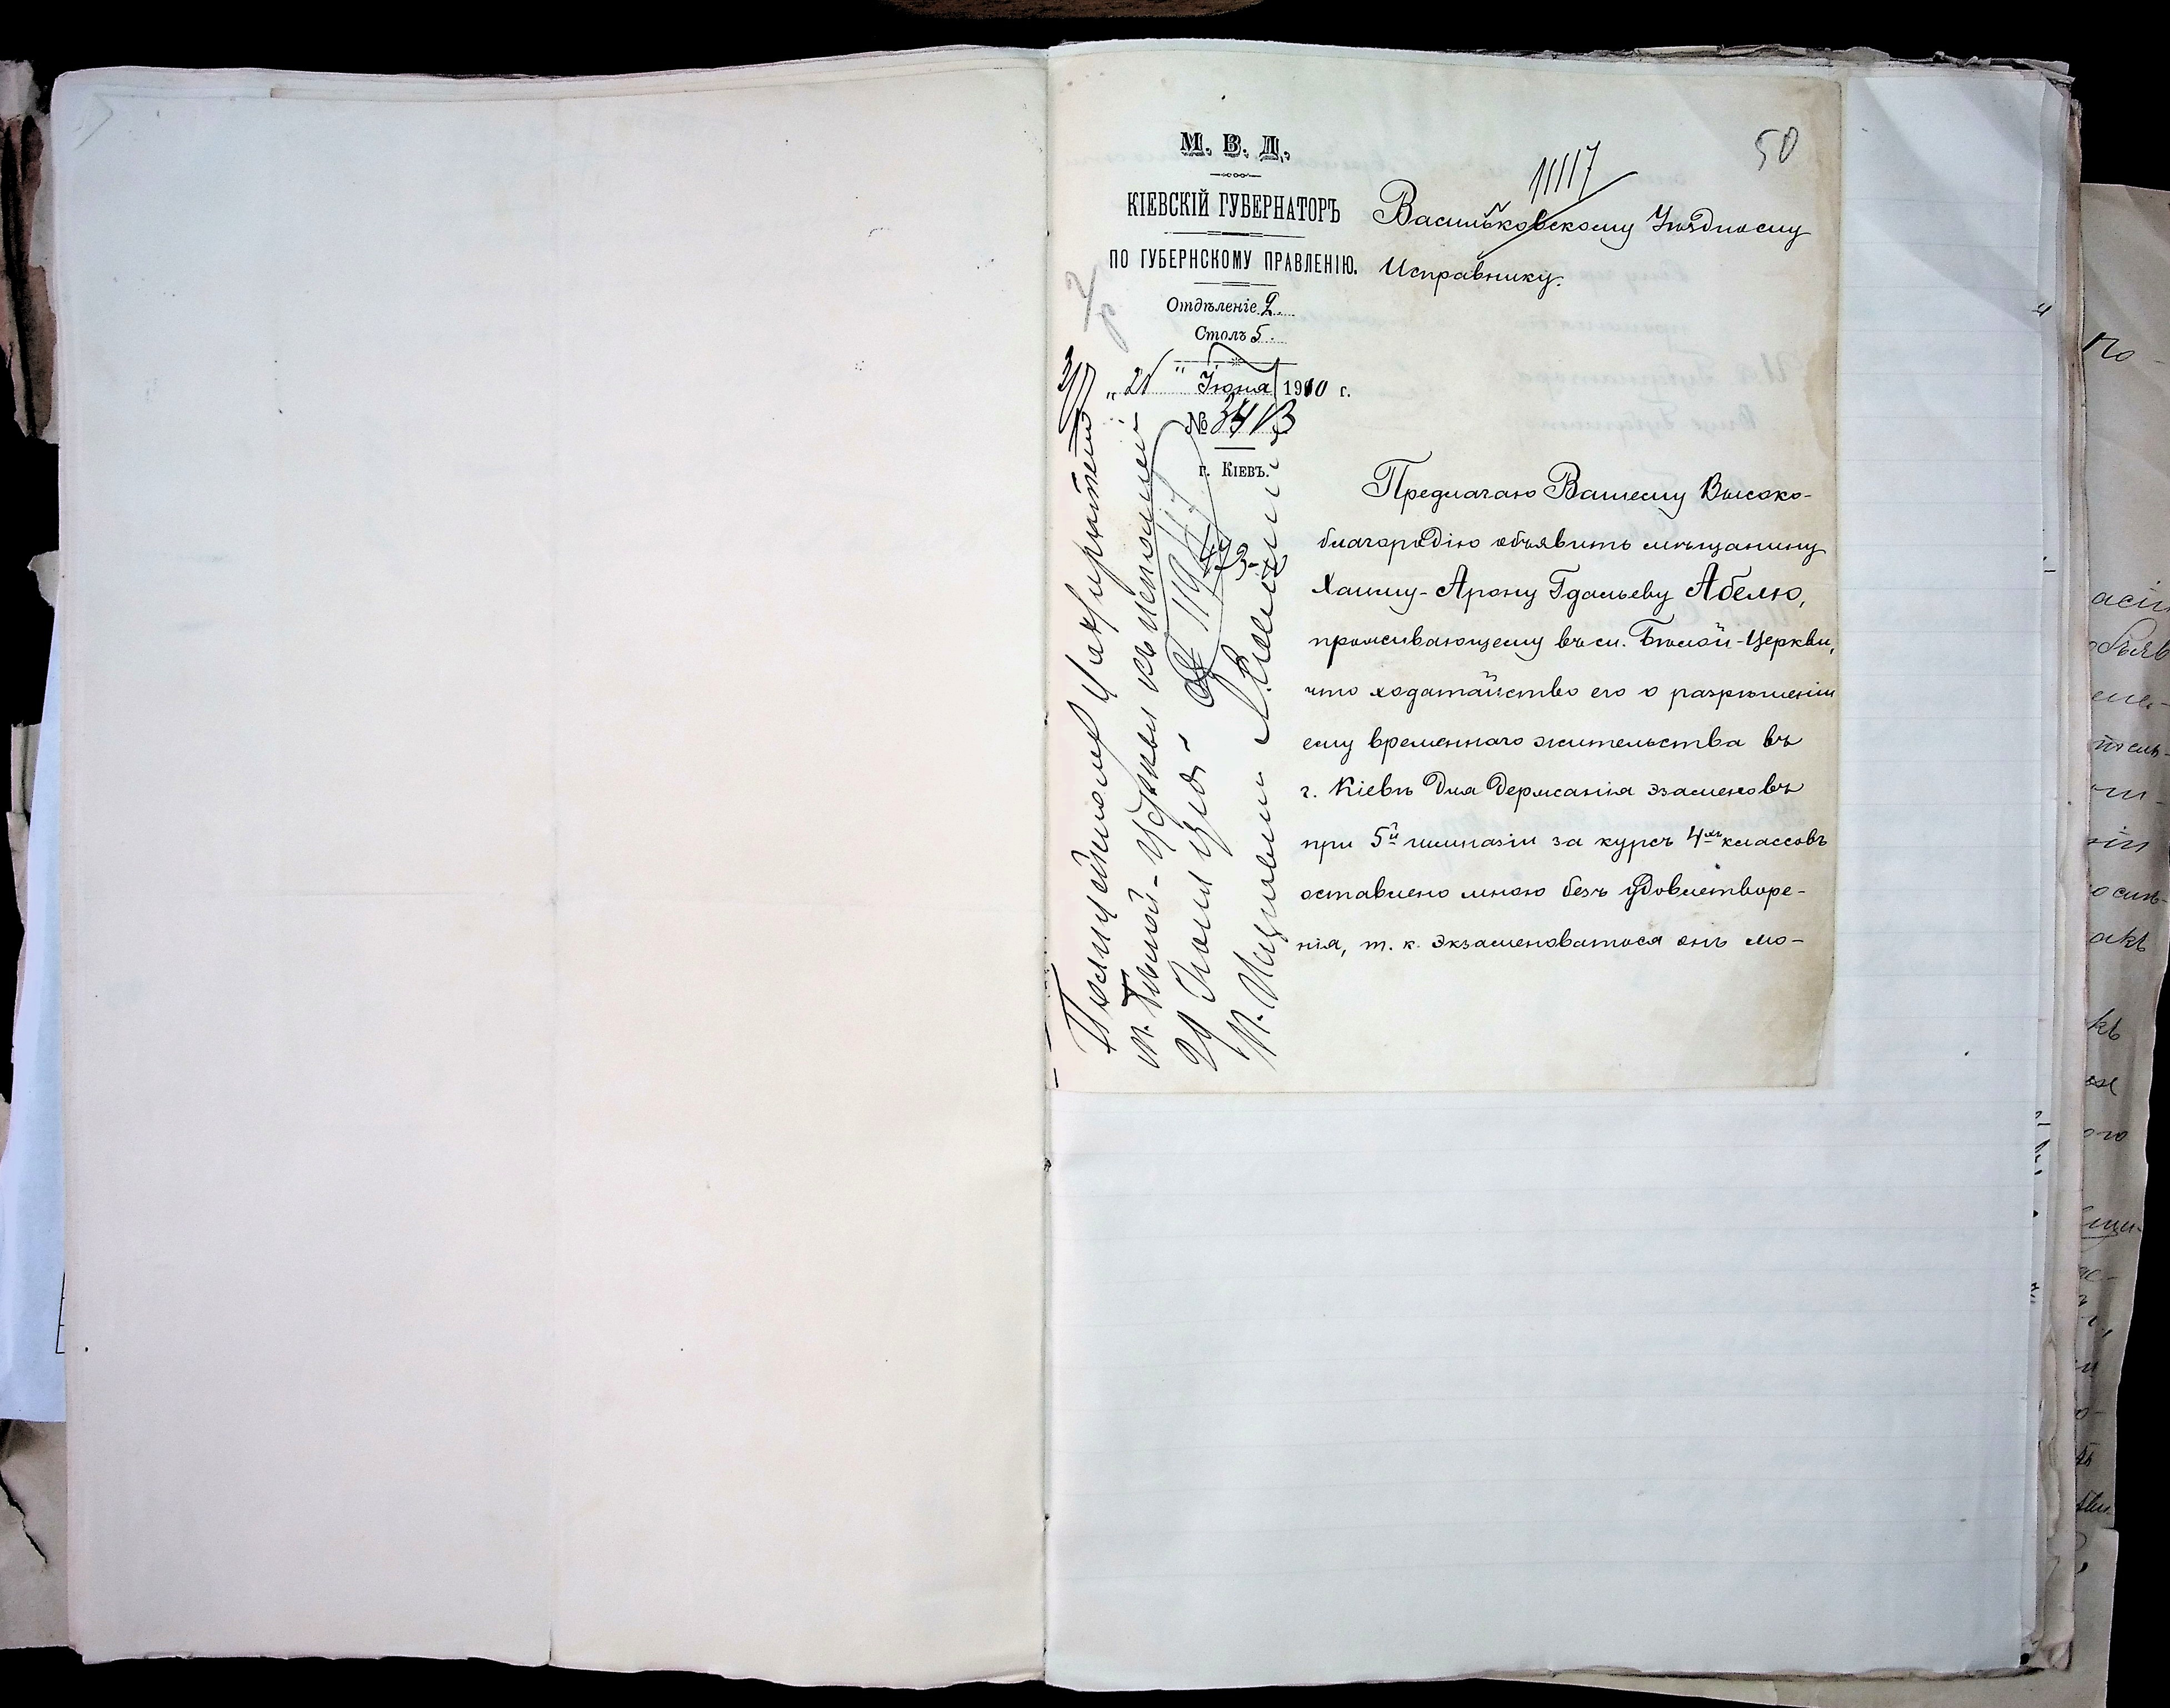 50
М. В. Д.
КІЕВСКІЙ ГУБЕРНАТОРЪ
ПО ГУБЕРНСКОМУ ПРАВЛЕНІЮ.
Отдѣленіе 2.
Столъ 5.
"21" Іюня 1910 г.
№ 3413
г. КІЕВЪ.
11117
Васильковскому Уѣздному
Исправнику.
Предлагаю Вашему Высоко-
благородію объявить мѣщанину
Хаиму-Арону Гдальеву Абелю,
проживающему въ м. Бѣлой-Церкви,
что ходатайство его о разрѣшеніи
ему временнаго жительства въ
г. Кіевѣ для держанія эзаменовъ
при 5й гимназіи за курсъ 4хъ классовъ
оставлено мною безъ удовлетворе-
нія, т. к. экзаменоваться онъ мо-
3/7
Полицейскому
м. Бѣлой-Церкви къ исполненію